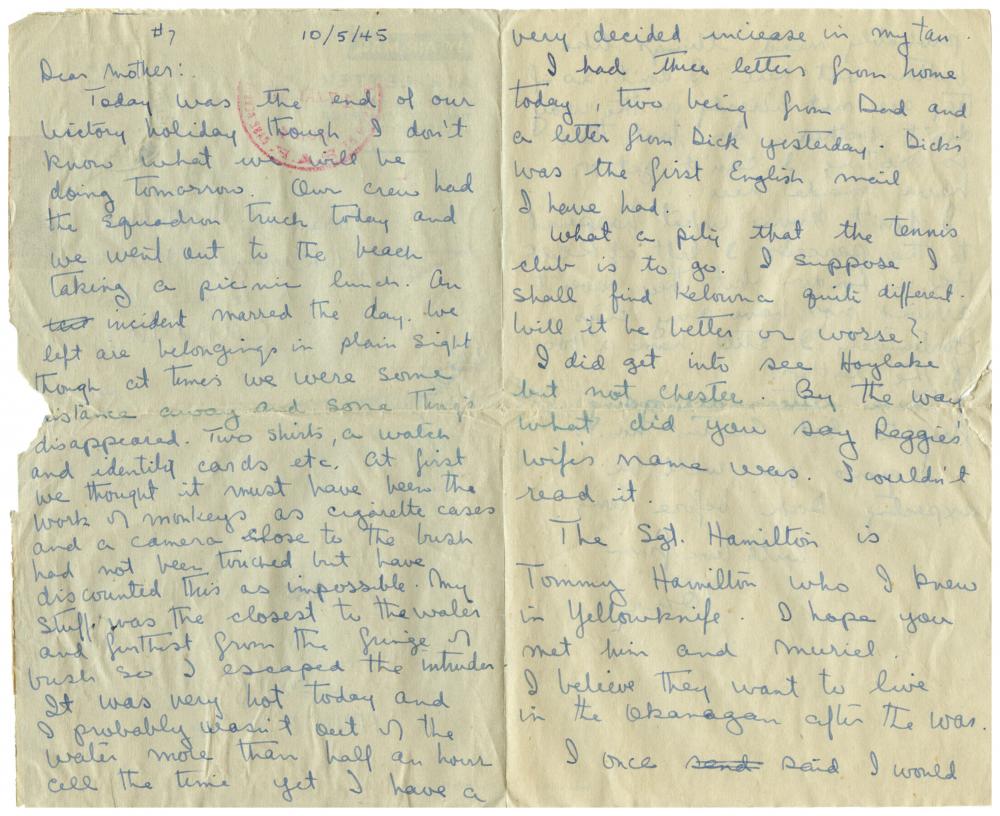 #7 10/5/45
Dear Mother:.
Today was the end of our
Victory holiday though I don't
know what we will be
doing tomorrow. Our crew had
the squadron truck today and
we went out to the beach
taking a picnic lunch. An
incident marred the day. We
left are belongings in plain sight
though at times we were some
distance away and some things
disappeared. Two shirts, a watch
and identity cards etc. At first
we thought it must have been the
work of monkeys as cigarette cases
and a camera close to the bush
had not been touched but have
discounted this as impossible. My
stuff was the closest to the water
and furthest from the fringe of
bush so I escaped the intruder.
It was very hot today and
I probably wasn't out of the
water more than half an hour
all the time yet I have a
very decided increase in my tan.
I had three letters from home
today, two being from Dad and
a letter from Dick yesterday. Dick's
was the first English mail
I have had.
What a pity that the tennis
club is to go. I suppose I
shall find Kelowna quite different.
Will it be better or worse?
I did get into see Hoylake
but not Chester. By the way
what did you say Reggie's
wife's name was. I couldn't
read it.
The Sgt. Hamilton is
Tommy Hamilton who I knew
in Yellowknife. I hope you
met him and Muriel.
I believe they want to live
in the Okanagan after the war.
I once send said I would